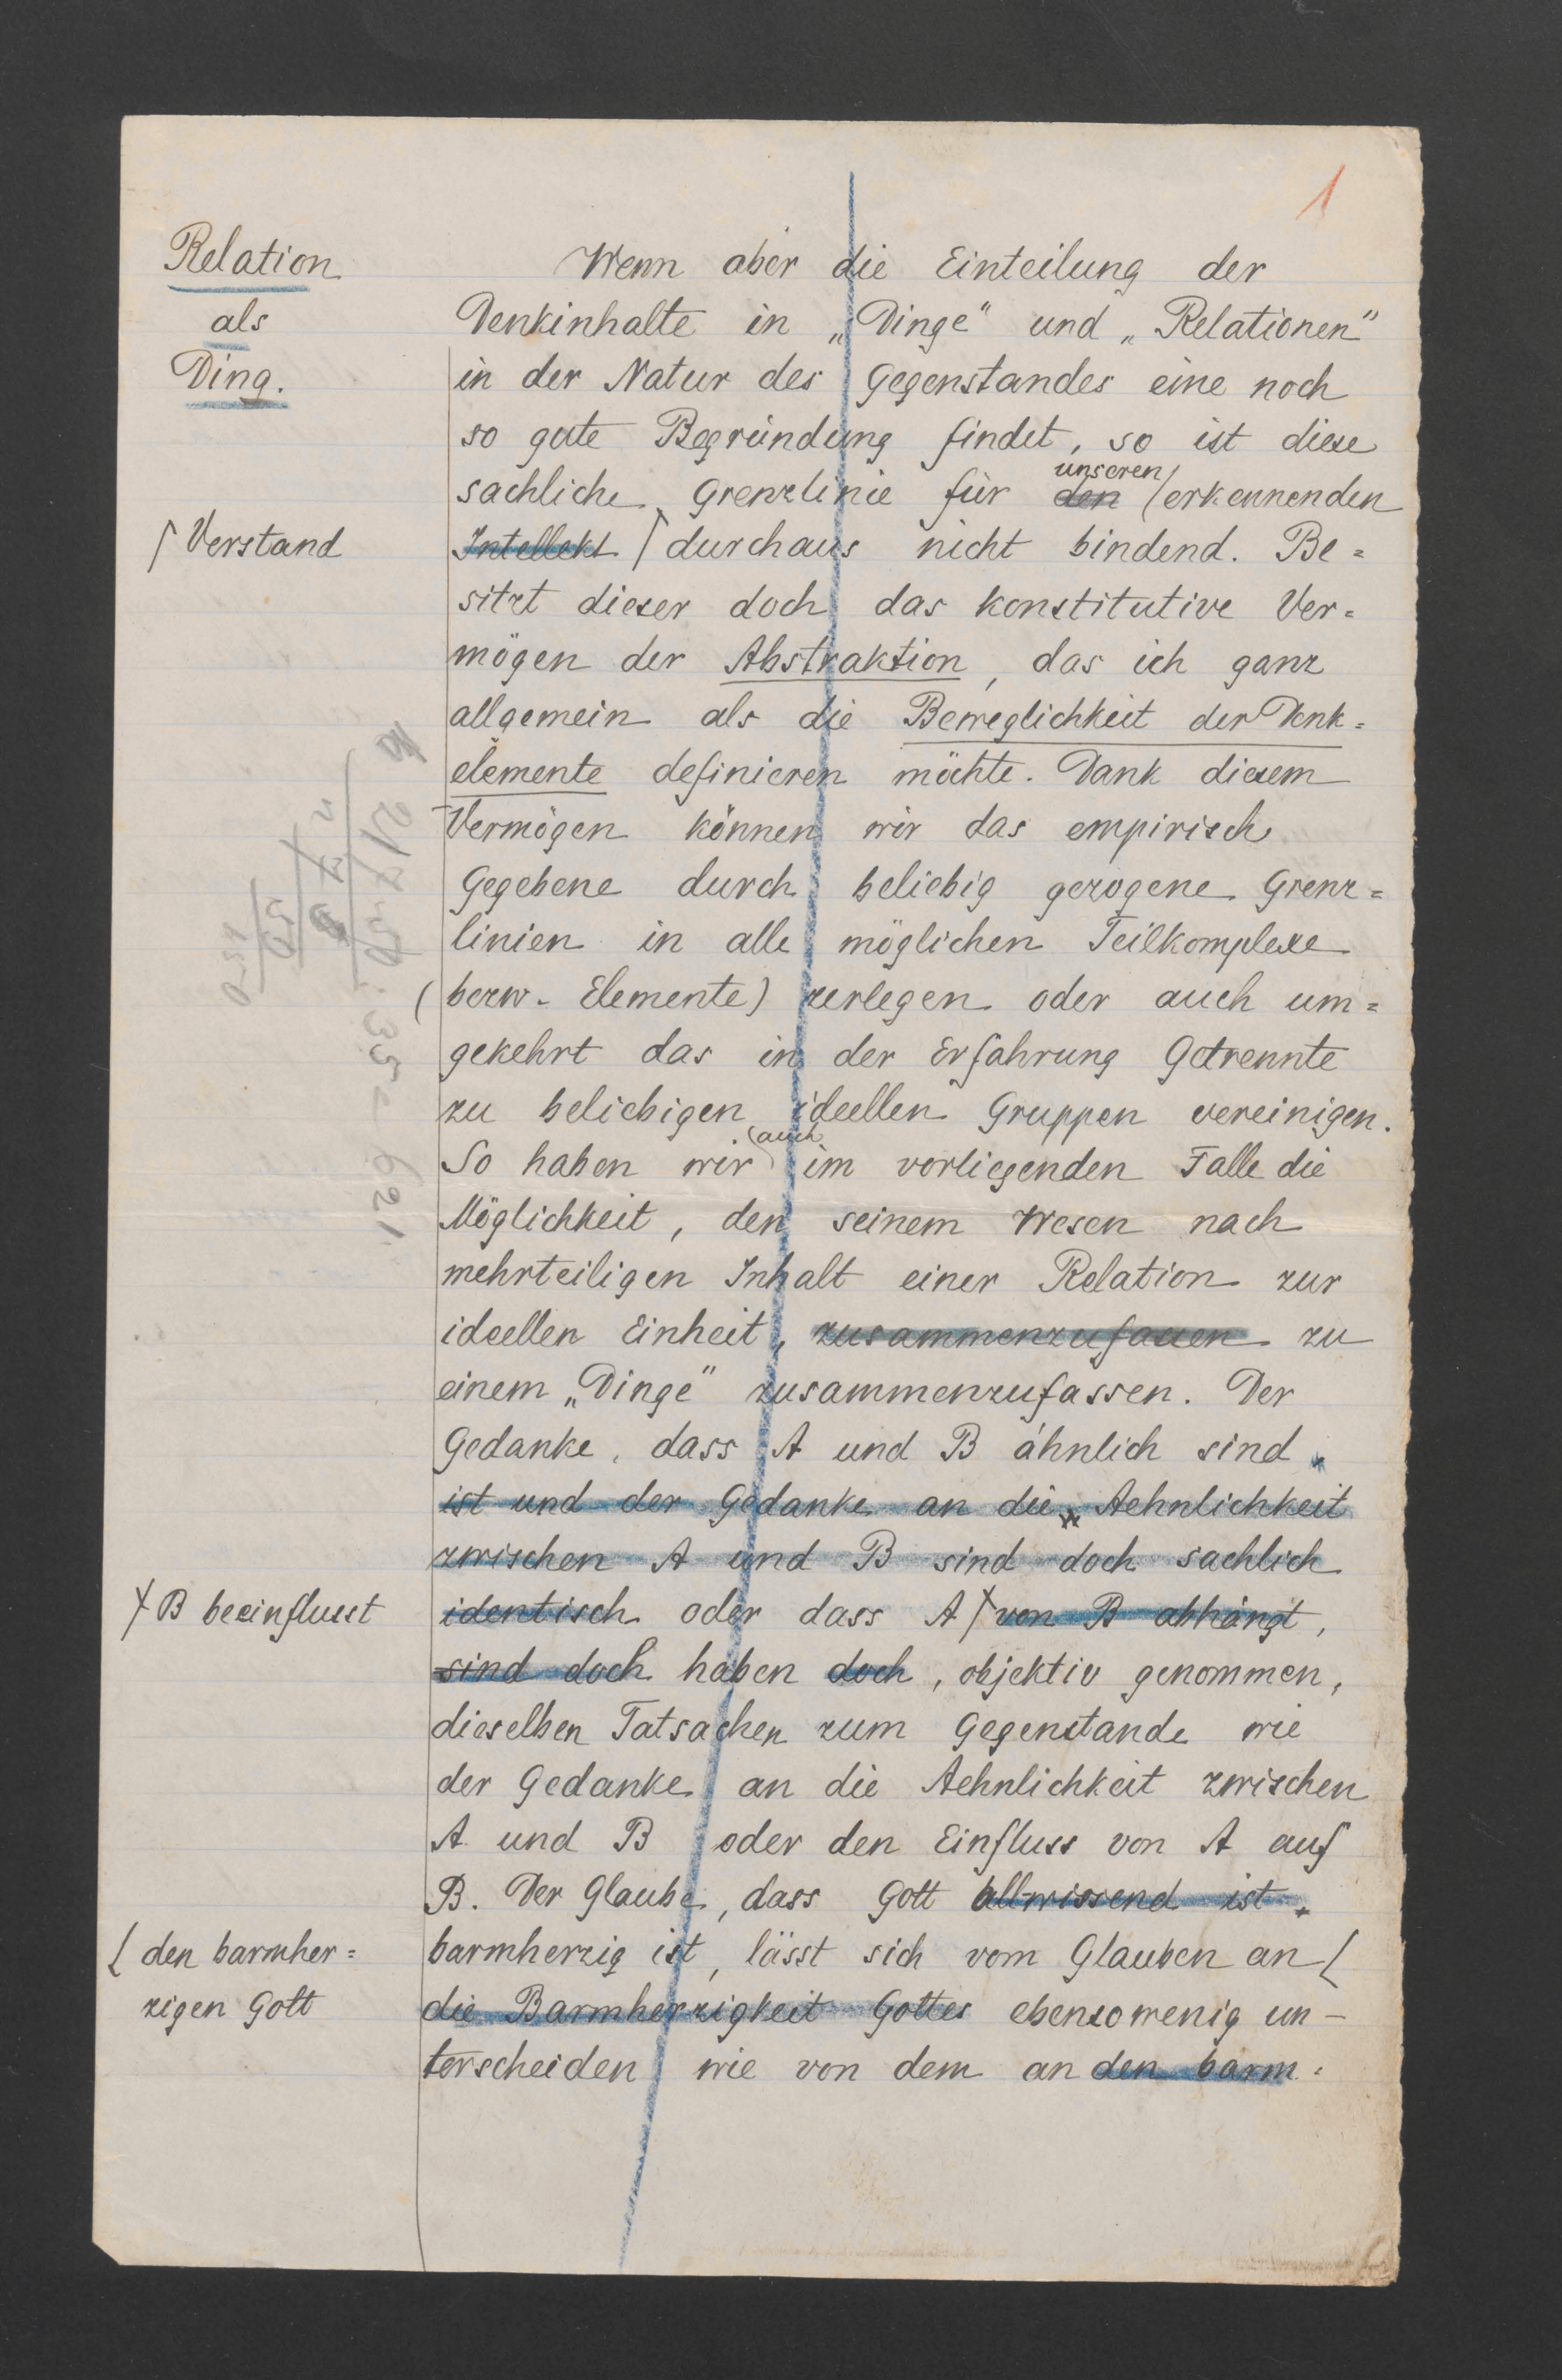 1
Relation
als
Ding.
Wenn aber die Einteilung der
Denkinhalte in „Dinge“ und „Relationen“
in der Natur des Gegenstandes eine noch
so gute Begründung findet, so ist diese
unseren
sachliche Grenzlinie für den erkennenden
Verstand
Intellekt durchaus nicht bindend. Be=
sitzt dieser doch das konstitutive Ver=
mögen der Abstraktion, das ich ganz
allgemein als die Beweglichkeit der Denk=
elemente definieren möchte. Dank diesem
Vermögen können wir das empirisch
Gegebene durch beliebig gezogene Grenz=
linien in alle möglichen Teilkomplexe
(bezw. Elemente) zerlegen oder auch um=
gekehrt das in der Erfahrung Getrennte
zu beliebigen ideellen Gruppen vereinigen.
auch
So haben wir im vorliegenden Falle die
Möglichkeit, den seinem Wesen nach
mehrteiligen Inhalt einer Relation zur
ideellen Einheit, zusammenzufassen zu
einem „Dinge“ zusammenzufassen. Der
Gedanke, dass A und B ähnlich sind,
ist und der Gedanke an die Aehnlichkeit
zwischen A und B sind doch sachlich
B beeinflusst
identisch oder dass A von B abhängt,
sind doch haben doch, objektiv genommen,
dieselben Tatsachen zum Gegenstande wie
der Gedanke an die Aehnlichkeit zwischen
A und B oder den Einfluss von A auf
B. Der Glaube, dass Gott allwissend ist,
barmherzig ist, lässt sich vom Glauben an
den barmher=
zigen Gott
die Barmherzigkeit Gottes ebensowenig un-
terscheiden wie von dem an den barm=